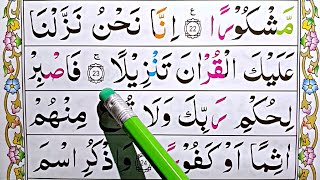 مَّشْكُوْرًا ۝22 اِنَّا نَحْنُ نَزَّلْنَا
عَلَيْكَ الْقُرْاٰنَ تَنْزِيْلًا ۝23 فَاصْبِرْ
لِحُكْمِ رَبِّكَ وَلَا مِنْهُمْ
اٰثِمًا اَوْ كَفُوْرًا ۝24 وَاذْكُرِ اسْمَ